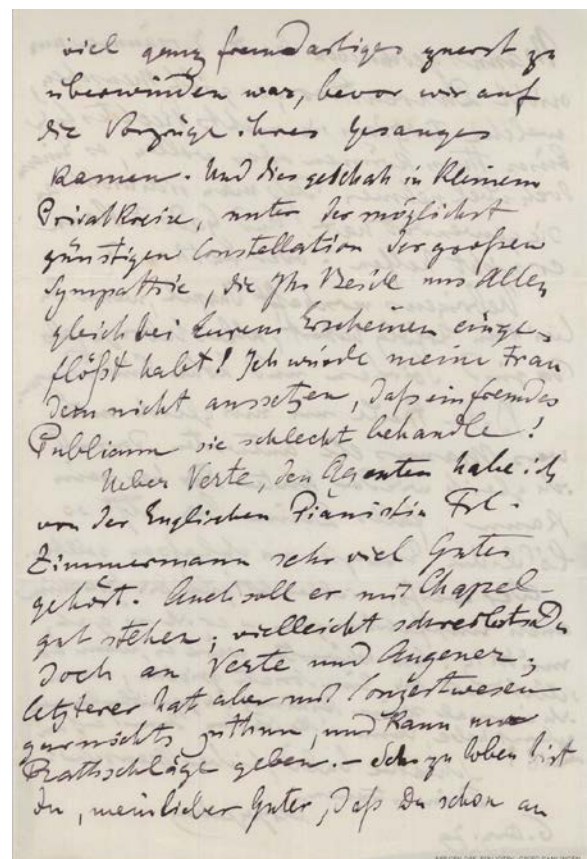 viel ganz fremdartiges zuerst zu
überwinden war, bevor wir auf
die Vorzüge ihres Gesanges
kamen. Und dies geschah in kleinem
Privatkreise, unter der möglichst
günstigen Constellation der großen
Sympathie, die Ihr Beide uns Allen
gleich bei Eurem Erscheinen einge-
flößt habt! Ich würde meine Frau
dem nicht aussetzen, daß ein fremdes
Publicum sie schlecht behandle!
Ueber Verte, den Agenten habe ich
von der Englischen Pianistin Frl.
Zimmermann sehr viel Gutes
gehört. Auch soll er mit Chapel
gut stehen; vielleicht schreibst Du
doch an Verte und Augener;
letzterer hat aber mit Conzertwesen
gar nichts zu thun, und kann nur
Rathschläge geben. – Sehr zu loben bist
Du, mein lieber Guter, daß Du schon an